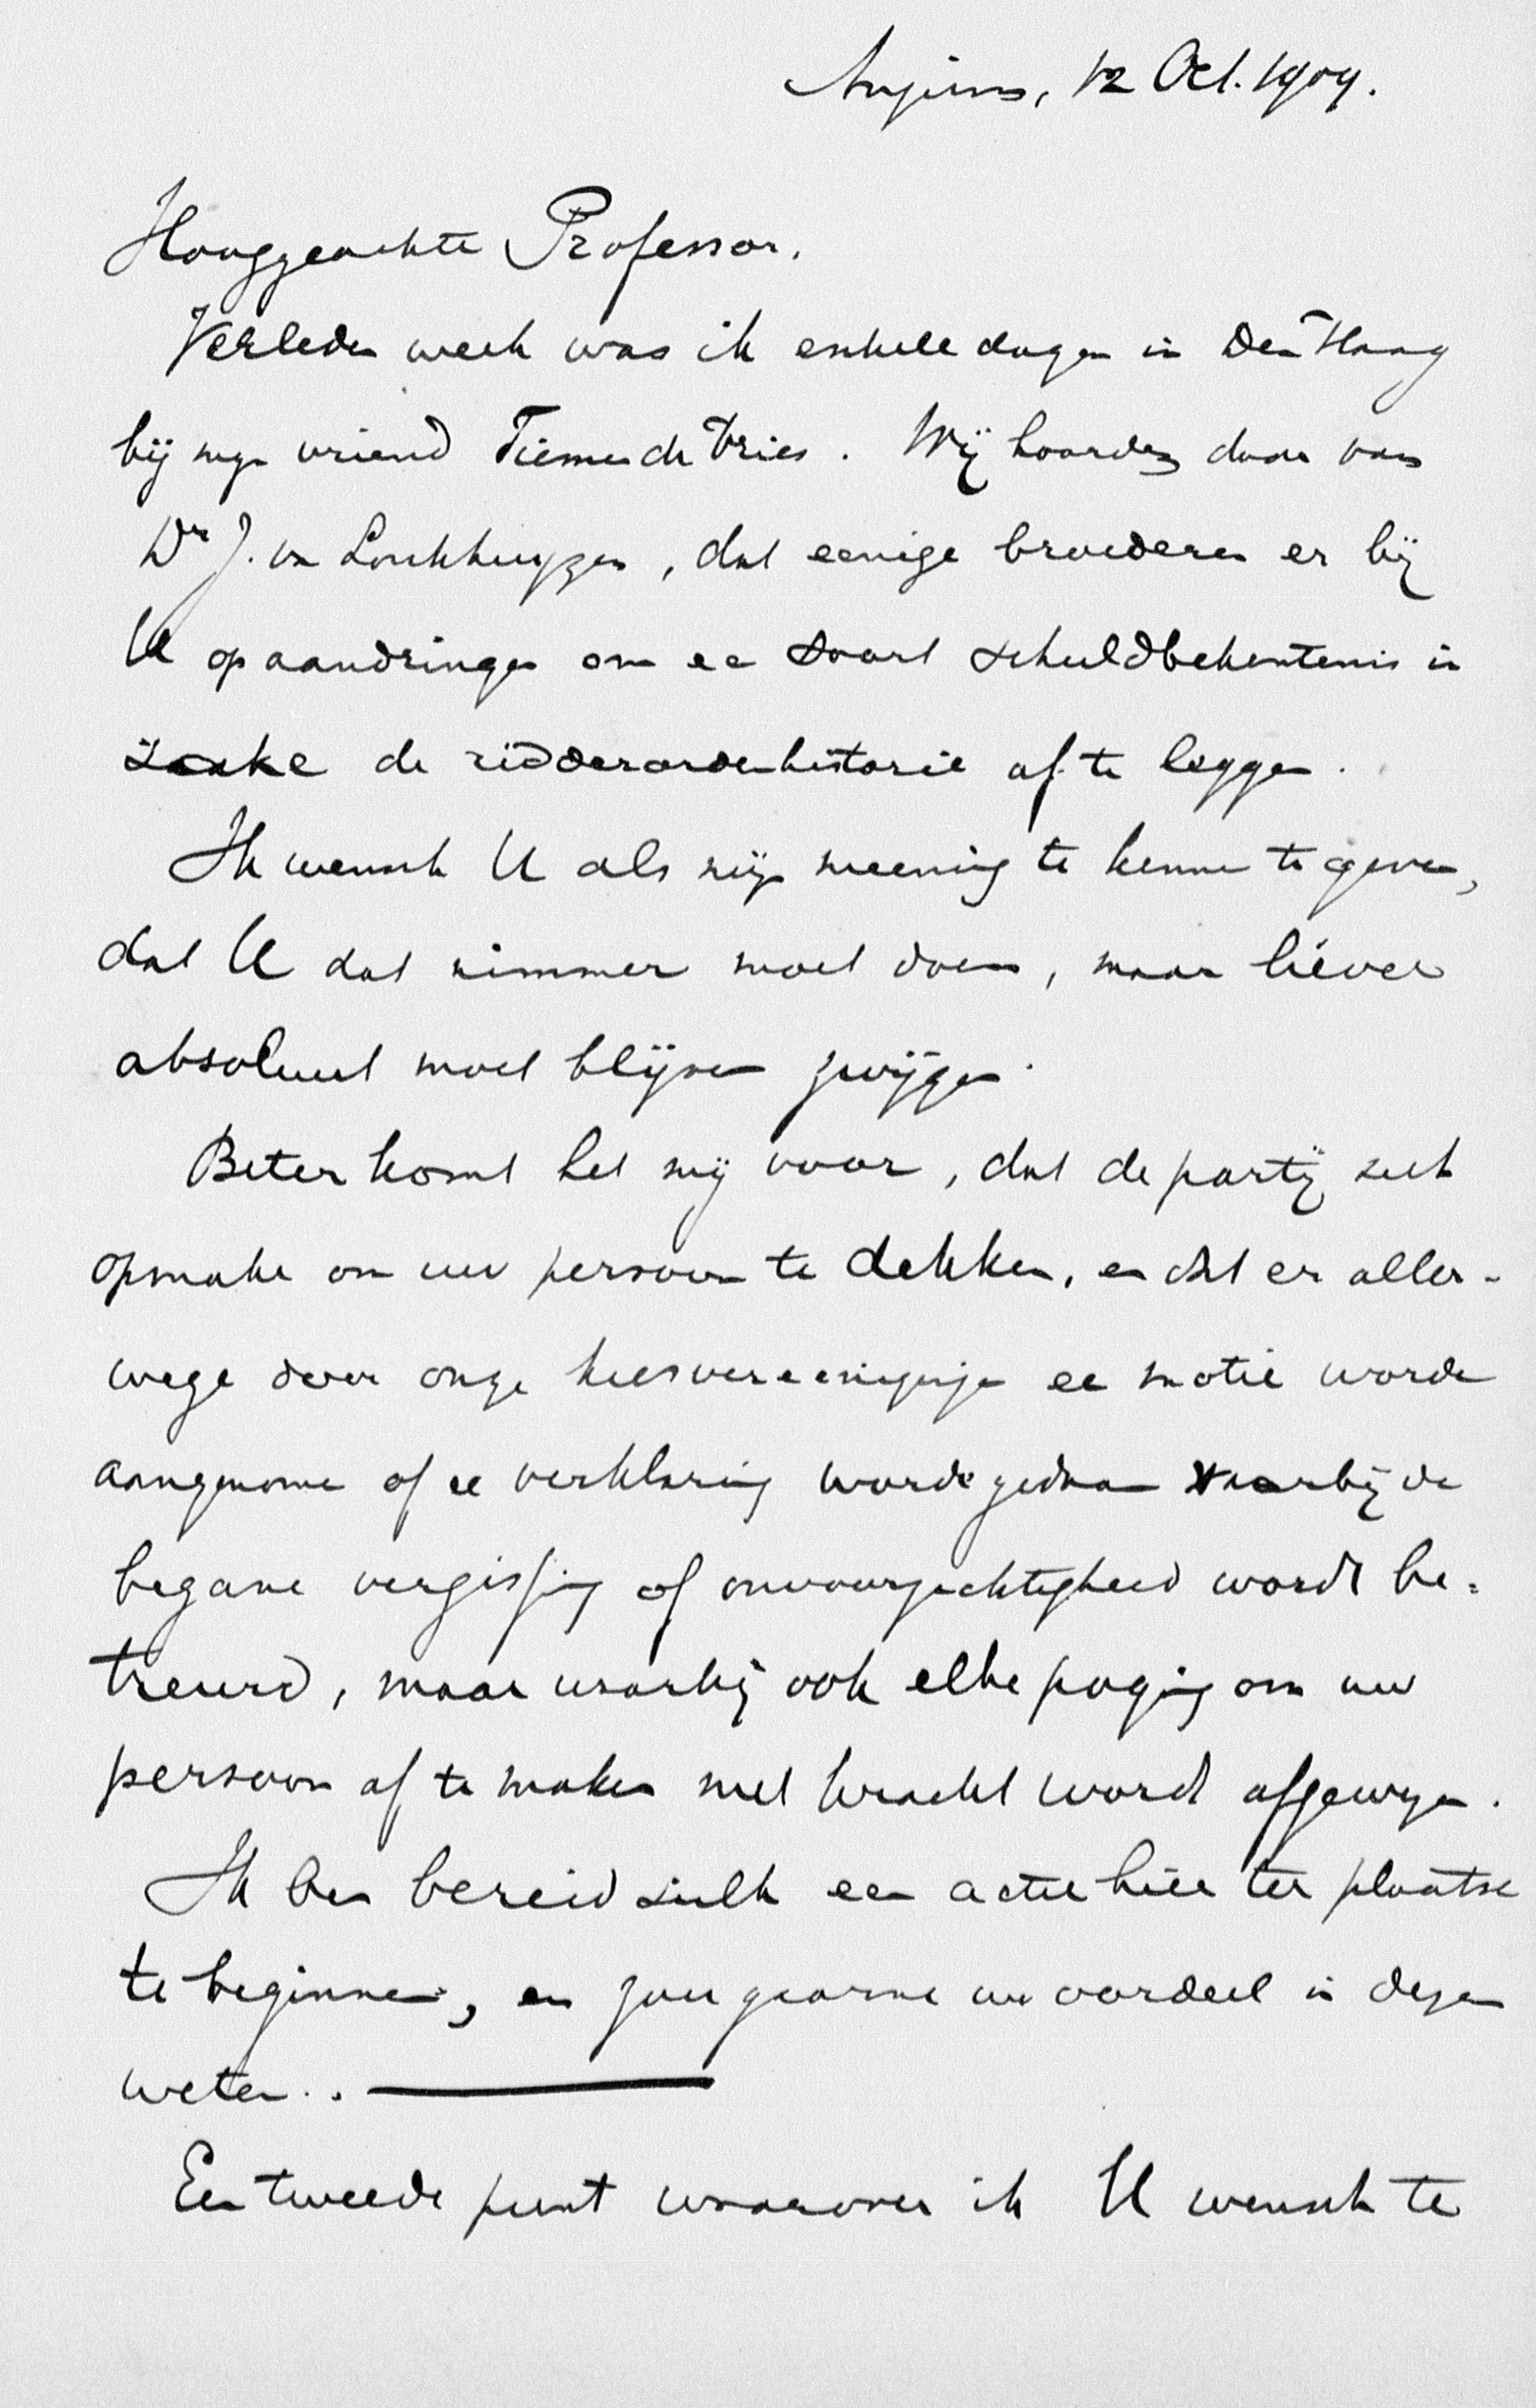 12 Oct. 1909.
Hooggeachte Professor.
Verleden week was ik enkele dagen in Den Haag
bij mijn vriend Tiemen de Vries. Wij hoorden daar van
Dr J. van Lonkhuyzen, dat eenige broederen er bij
U op aandringen om een soort schuldbekentenis in
zake de ridderordenhistorie af te leggen.
Ik wensch U als mijn meening te kennen te geven,
dat U dat nimmer moet doen, maar liever
absoluut moet blijven zwijgen.
Beter komt het mij voor, dat de partij zich
opmake om uw persoon te dekken, en dat er aller-
wege door onze kiesvereenigingen een motie worde
aangenomen of een verklaring worde gedaan waarbij de
begane vergissing of onvoorzichtigheid wordt be=
treurd, maar waarbij ook elke poging om uw
persoon af te maken met kracht wordt afgewezen.
Ik ben bereid zulk een actie hier ter plaatse
te beginnen, en zou gaarne uw oordeel in dezen
weten..
Een tweede punt waarover ik U wensch te